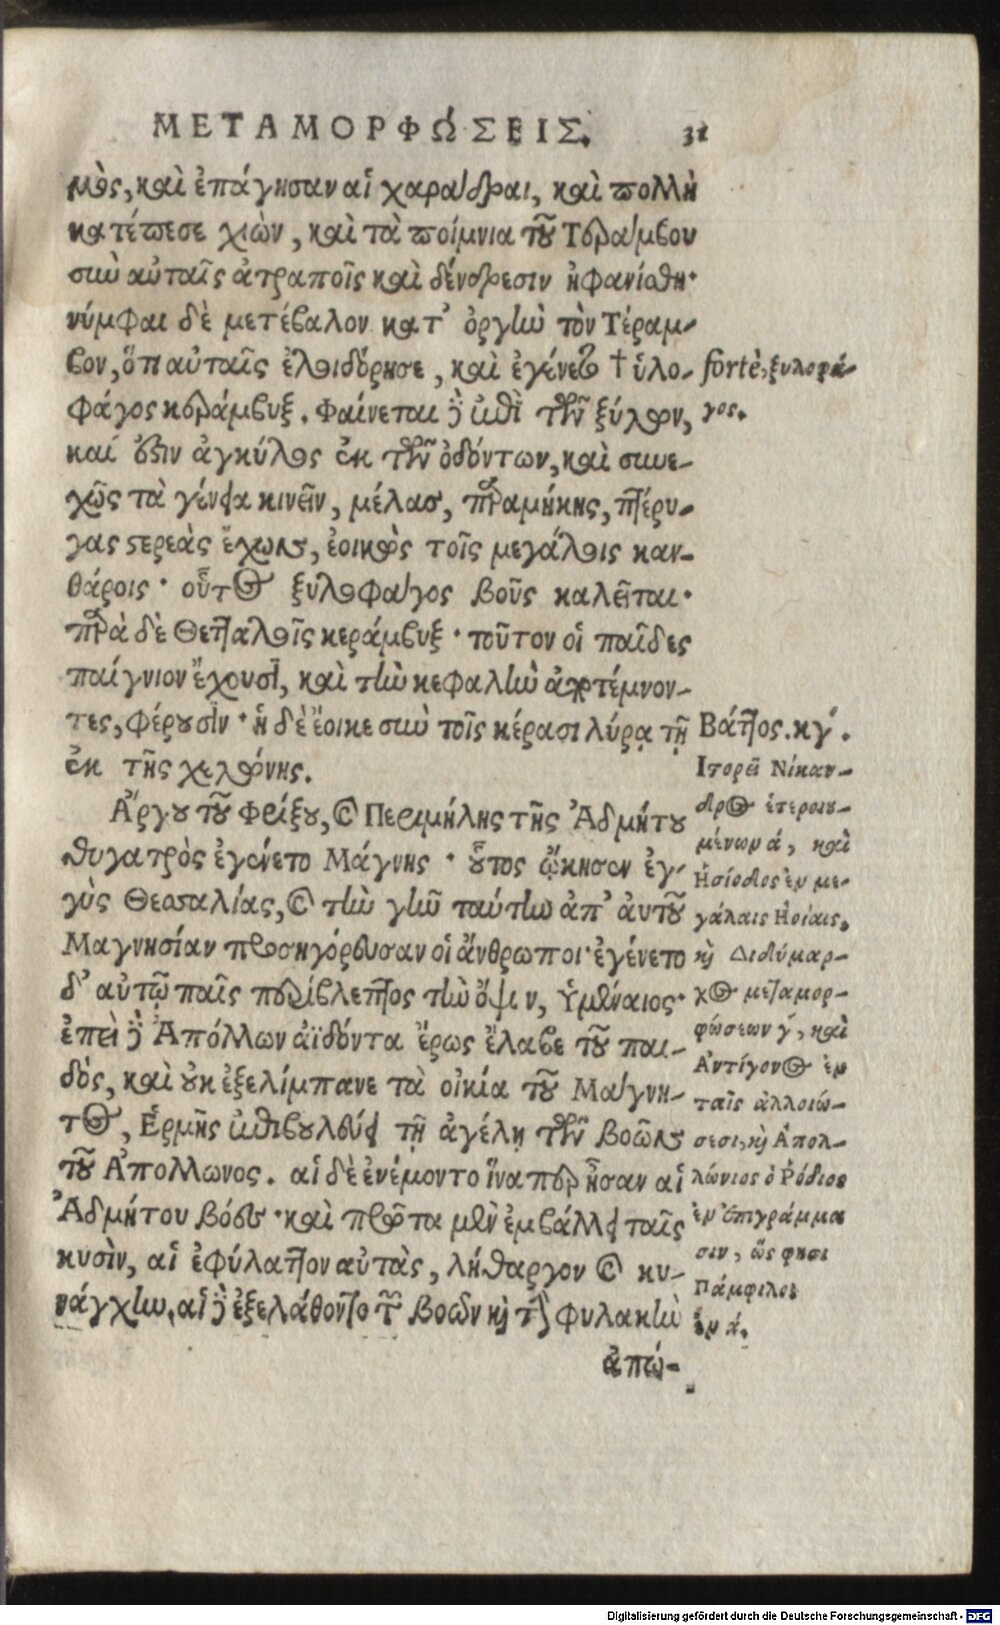 ΜΕΤΑΜΟΡΦΏΣΕΙΣ. 31
μὸς, καὶ ἐπάγησαν αἱ χαράδραι, καὶ πολλὴ
κατέπεσε χιὼν, καὶ τὰ ποίμνια τοῦ Τεράμβου
σὺν αὐταῖς ἀτραποῖς καὶ δένδρεσιν ἠφανίσθη·
νύμφαι δὲ μετέβαλον κατ' ὀργὴν τὸν Τέραμ-
βον, ὅτι αὐταῖς ἐλοιδόρησε, καὶ ἐγένετο † ὑλο-
φάγος κεράμβυξ. Φαίνεται δὲ ἐπὶ τῶν ξύλων,
καί ἐστιν ἀγκύλος ἐκ τῶν ὀδόντων, καὶ συνε-
χῶς τὰ γένεια κινεῖν, μέλας, παραμήκης, πτέρυ-
γας στερεὰς ἔχων, ἐοικὼς τοῖς μεγάλοις καν-
θάροις· οὗτος ξυλοφάγος βοῦς καλεῖται·
παρὰ δὲ Θετταλοῖς κεράμβυξ· τοῦτον οἱ παῖδες
παίγνιον ἔχουσι, καὶ τὴν κεφαλὴν ἀποτέμνον-
τες, φέρουσιν· ἡ δὲ ἔοικε σὺν τοῖς κέρασι λύρᾳ τῇ
ἐκ τῆς χελώνης.
Ἄργου τοῦ Φρίξου, καὶ Περιμήλης τῆς Ἀδμήτου
θυγατρὸς ἐγένετο Μάγνης· οὗτος ᾤκησεν ἐγ-
γὺς Θεσσαλίας, καὶ τὴν γῆν ταύτην ἀπ' αὐτοῦ
Μαγνησίαν προσηγόρευσαν οἱ ἄνθρωποι· ἐγένετο
δ' αὐτῷ παῖς περίβλεπτος τὴν ὄψιν, Ὑμέναιος·
ἐπεὶ δὲ Ἀπόλλων ἀϊδόντα ἔρως ἔλαβε τοῦ παι-
δὸς, καὶ οὐκ ἐξελίμπανε τὰ οἰκία τοῦ Μάγνη-
τος, Ἑρμῆς ἐπιβουλεύει τῇ ἀγέλῃ τῶν βοῶν
τοῦ Ἀπόλλωνος. αἱ δὲ ἐνέμοντο ἵναπερ ἦσαν αἱ
Ἀδμήτου βόες· καὶ πρῶτα μὲν ἐμβάλλει ταῖς
κυσὶν, αἳ ἐφύλαττον αὐτὰς, λήθαργον καὶ κυ-
νάγχην, αἱ δὲ ἐξελάθοντο τῶν βοῶν καὶ τὴν φυλακὴν
ἀπώ-
fortè, ξυλοφά-
γος.
Βάττος. κγ΄.
Ἱστορεῖ Νίκαν-
δρος ἑτεροιου-
μένων ά, καὶ
Ἡσίοδος ἐν με-
γάλαις Ἠοίαις,
καὶ Διδύμαρ-
χος μεταμορ-
φώσεων γ́, καὶ
Ἀντίγονος ἐν
ταῖς ἀλλοιώ-
σεσι, καὶ Ἀπολ-
λώνιος ὁ Ῥόδιος
ἐν ἐπιγράμμα
σιν, ὥς φησι
Πάμφιλος
ἐν ά.
Digitalisierung gefördert durch die Deutsche Forschungsgemeinschaft - DFG